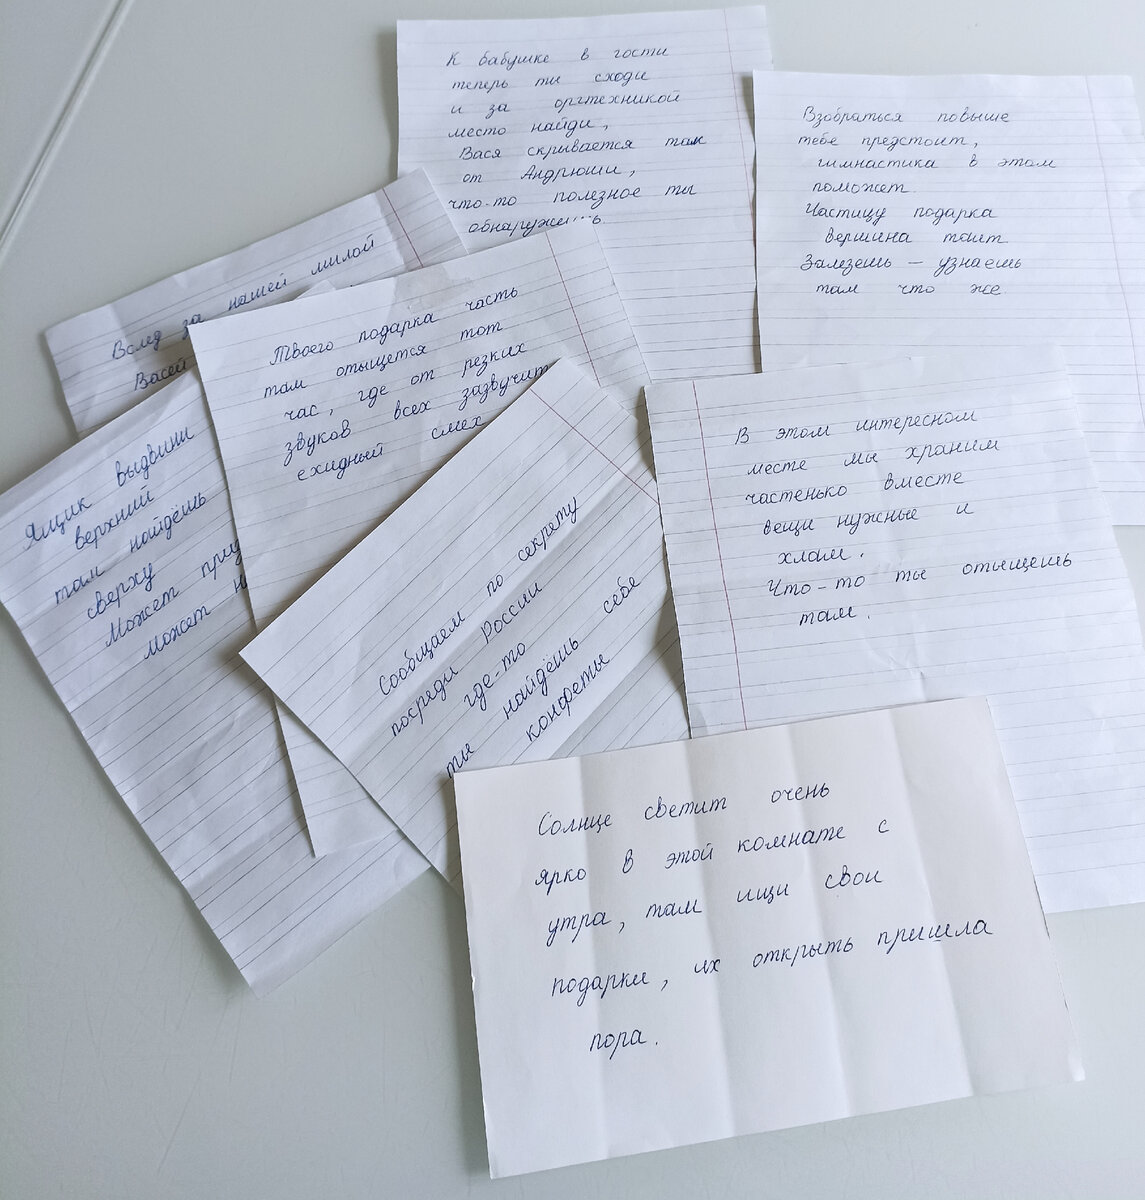 К бабушке в гости
теперь ты сходи
и за оргтехникой
место найди,
Вася скрывается там
от Андрюши,
что-то полезное ты
обнаружишь.
Взобраться повыше
тебе предстоит,
гимнастика в этом
поможет.
Частицу подарка
вершина таит.
Залезешь — узнаешь
там что же
Вслед за нашей милой
Васей
Твоего подарка часть
там отыщется тот
час, где от резких
звуков всех зазвучит
ехидный смех
Ящик выдвини
верхний
там найдёшь
сверху
Может
может
Сообщаем по секрету
посреди России
где-то
ты найдёшь себе
конфеты
В этом интересном
месте мы храним
частенько вместе
вещи нужные и
хлам.
Что-то ты отыщешь
там.
Солнце светит очень
ярко в этой комнате с
утра, там ищи свои
подарки, их открыть пришла
пора.